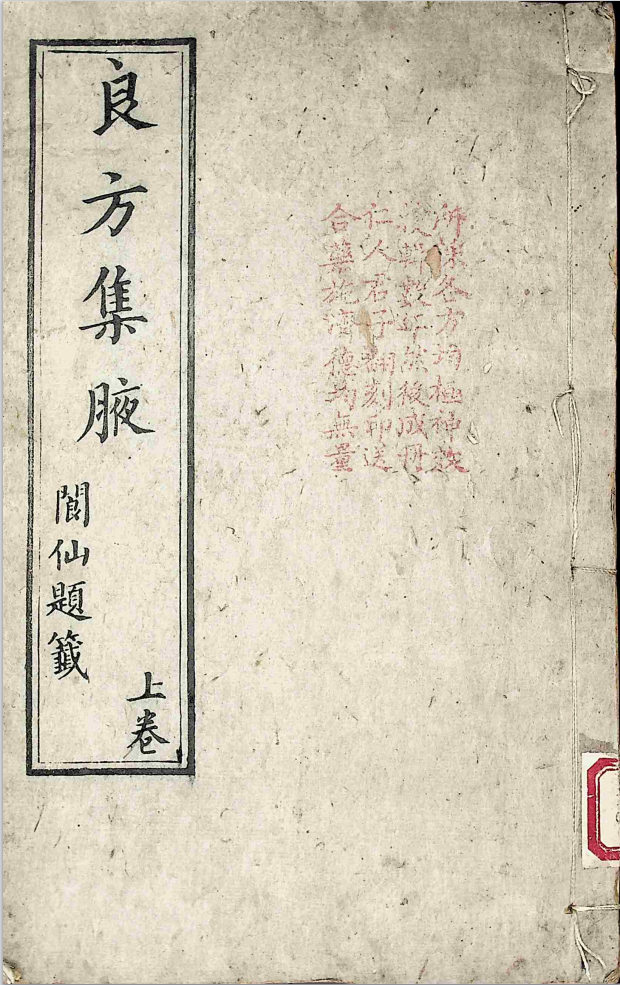 所各方均極神效
輯數年然後成冊
仁人君子翻刻印送
合藥施濟德均無量
良方集腋
上卷
閬仙題籤